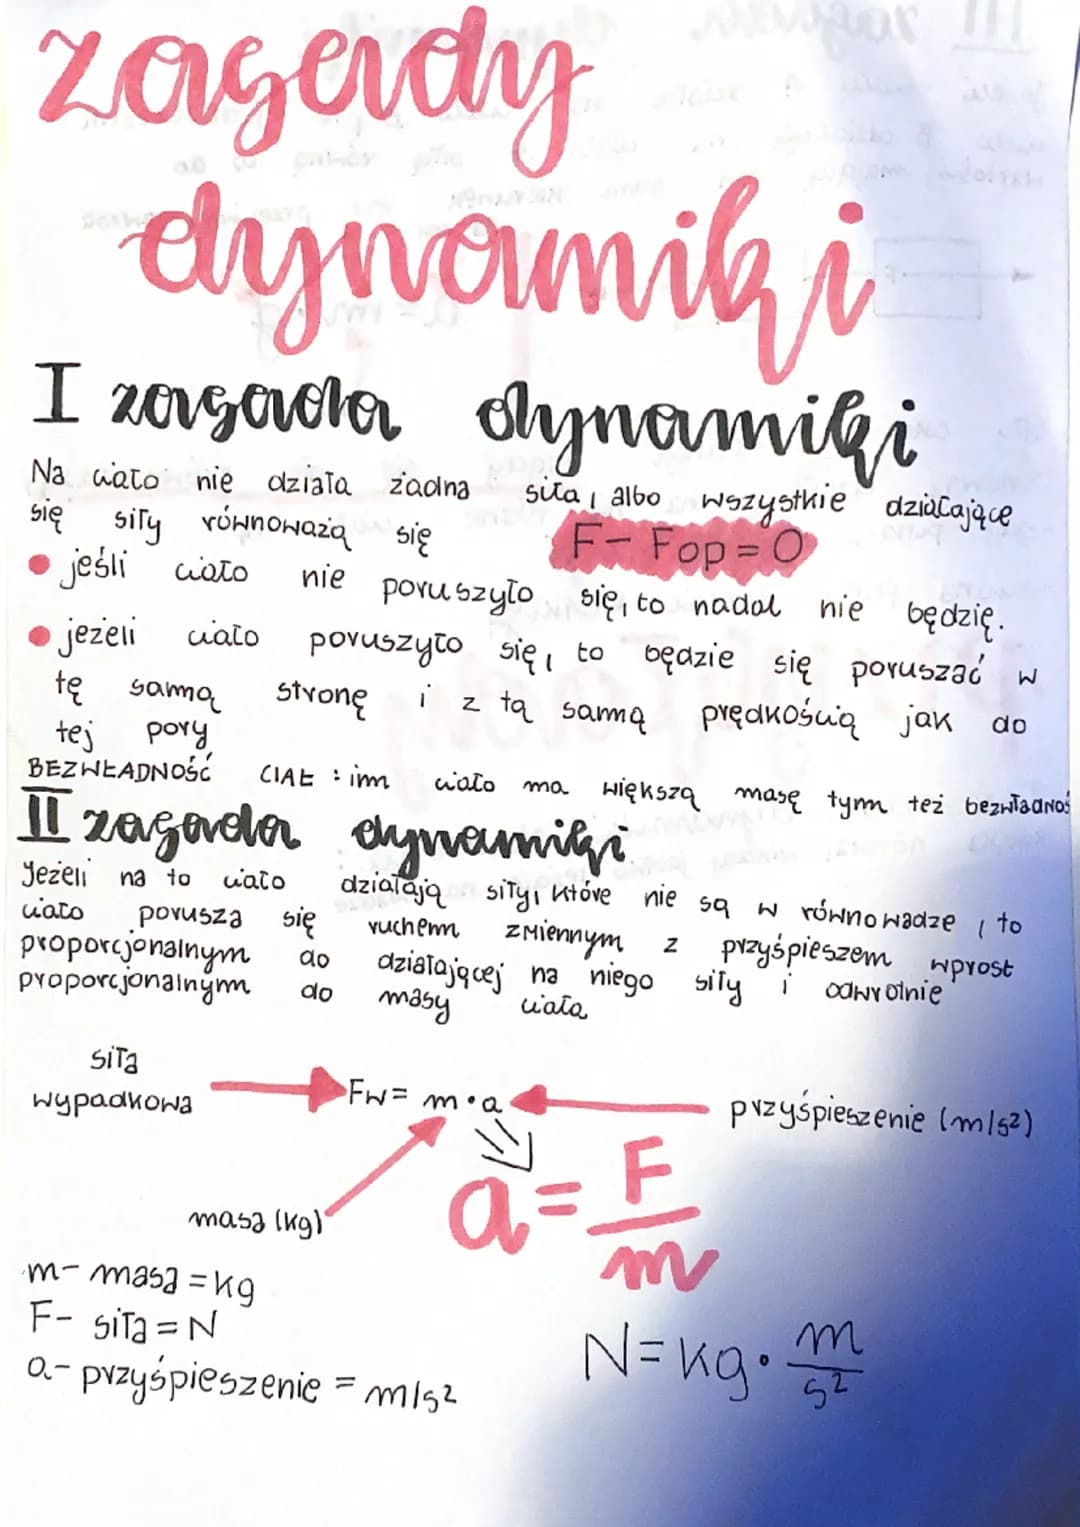 zasady
dynamiki
I zasada dynamiki
Na ciało nie działa żadna siła, albo wszystkie działające
się siły równoważą się F - Fop = 0
• jeśli ciało nie poruszyło się, to nadal nie będzię.
• jeżeli ciało poruszyło się, to będzie się poruszać w
tę samą stronę i z tą samą prędkością jak do
tej pory
BEZWŁADNOŚĆ CIAŁ : im ciało ma większą masę tym też bezwładnoś
II zasada dynamiki
Jeżeli na to ciało działają siły, które nie są w równowadze, to
ciało porusza się ruchem zmiennym z przyśpieszem wprost
proporcjonalnym do działającej na niego siły i odwrotnie
proporcjonalnym do masy ciała
siła
wypadkowa
Fw = m · a
przyśpieszenie (m/s²)
masa (kg)
a = F/m
m - masa = kg
F - siła = N
a - przyśpieszenie = m/s²
N = kg · m/s²